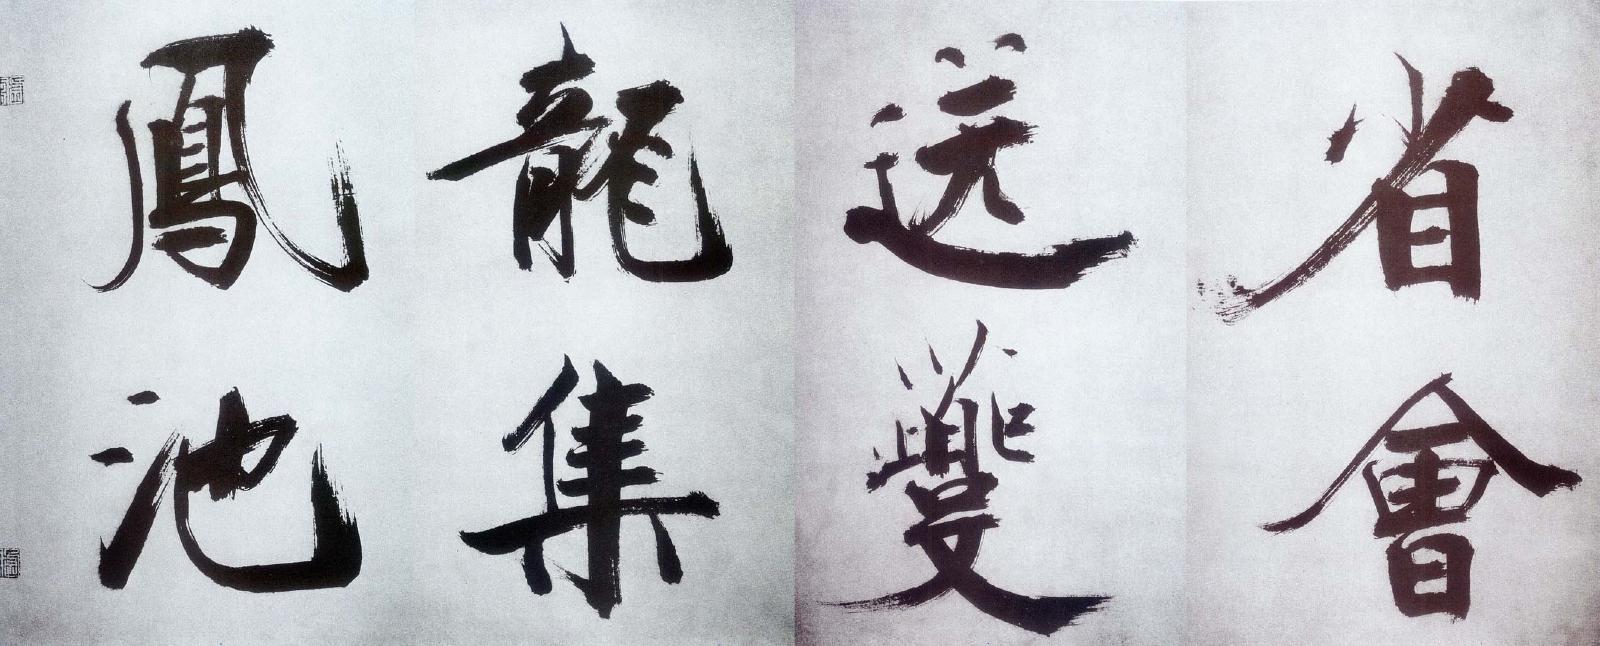 省會
送夔
龍集
鳳池